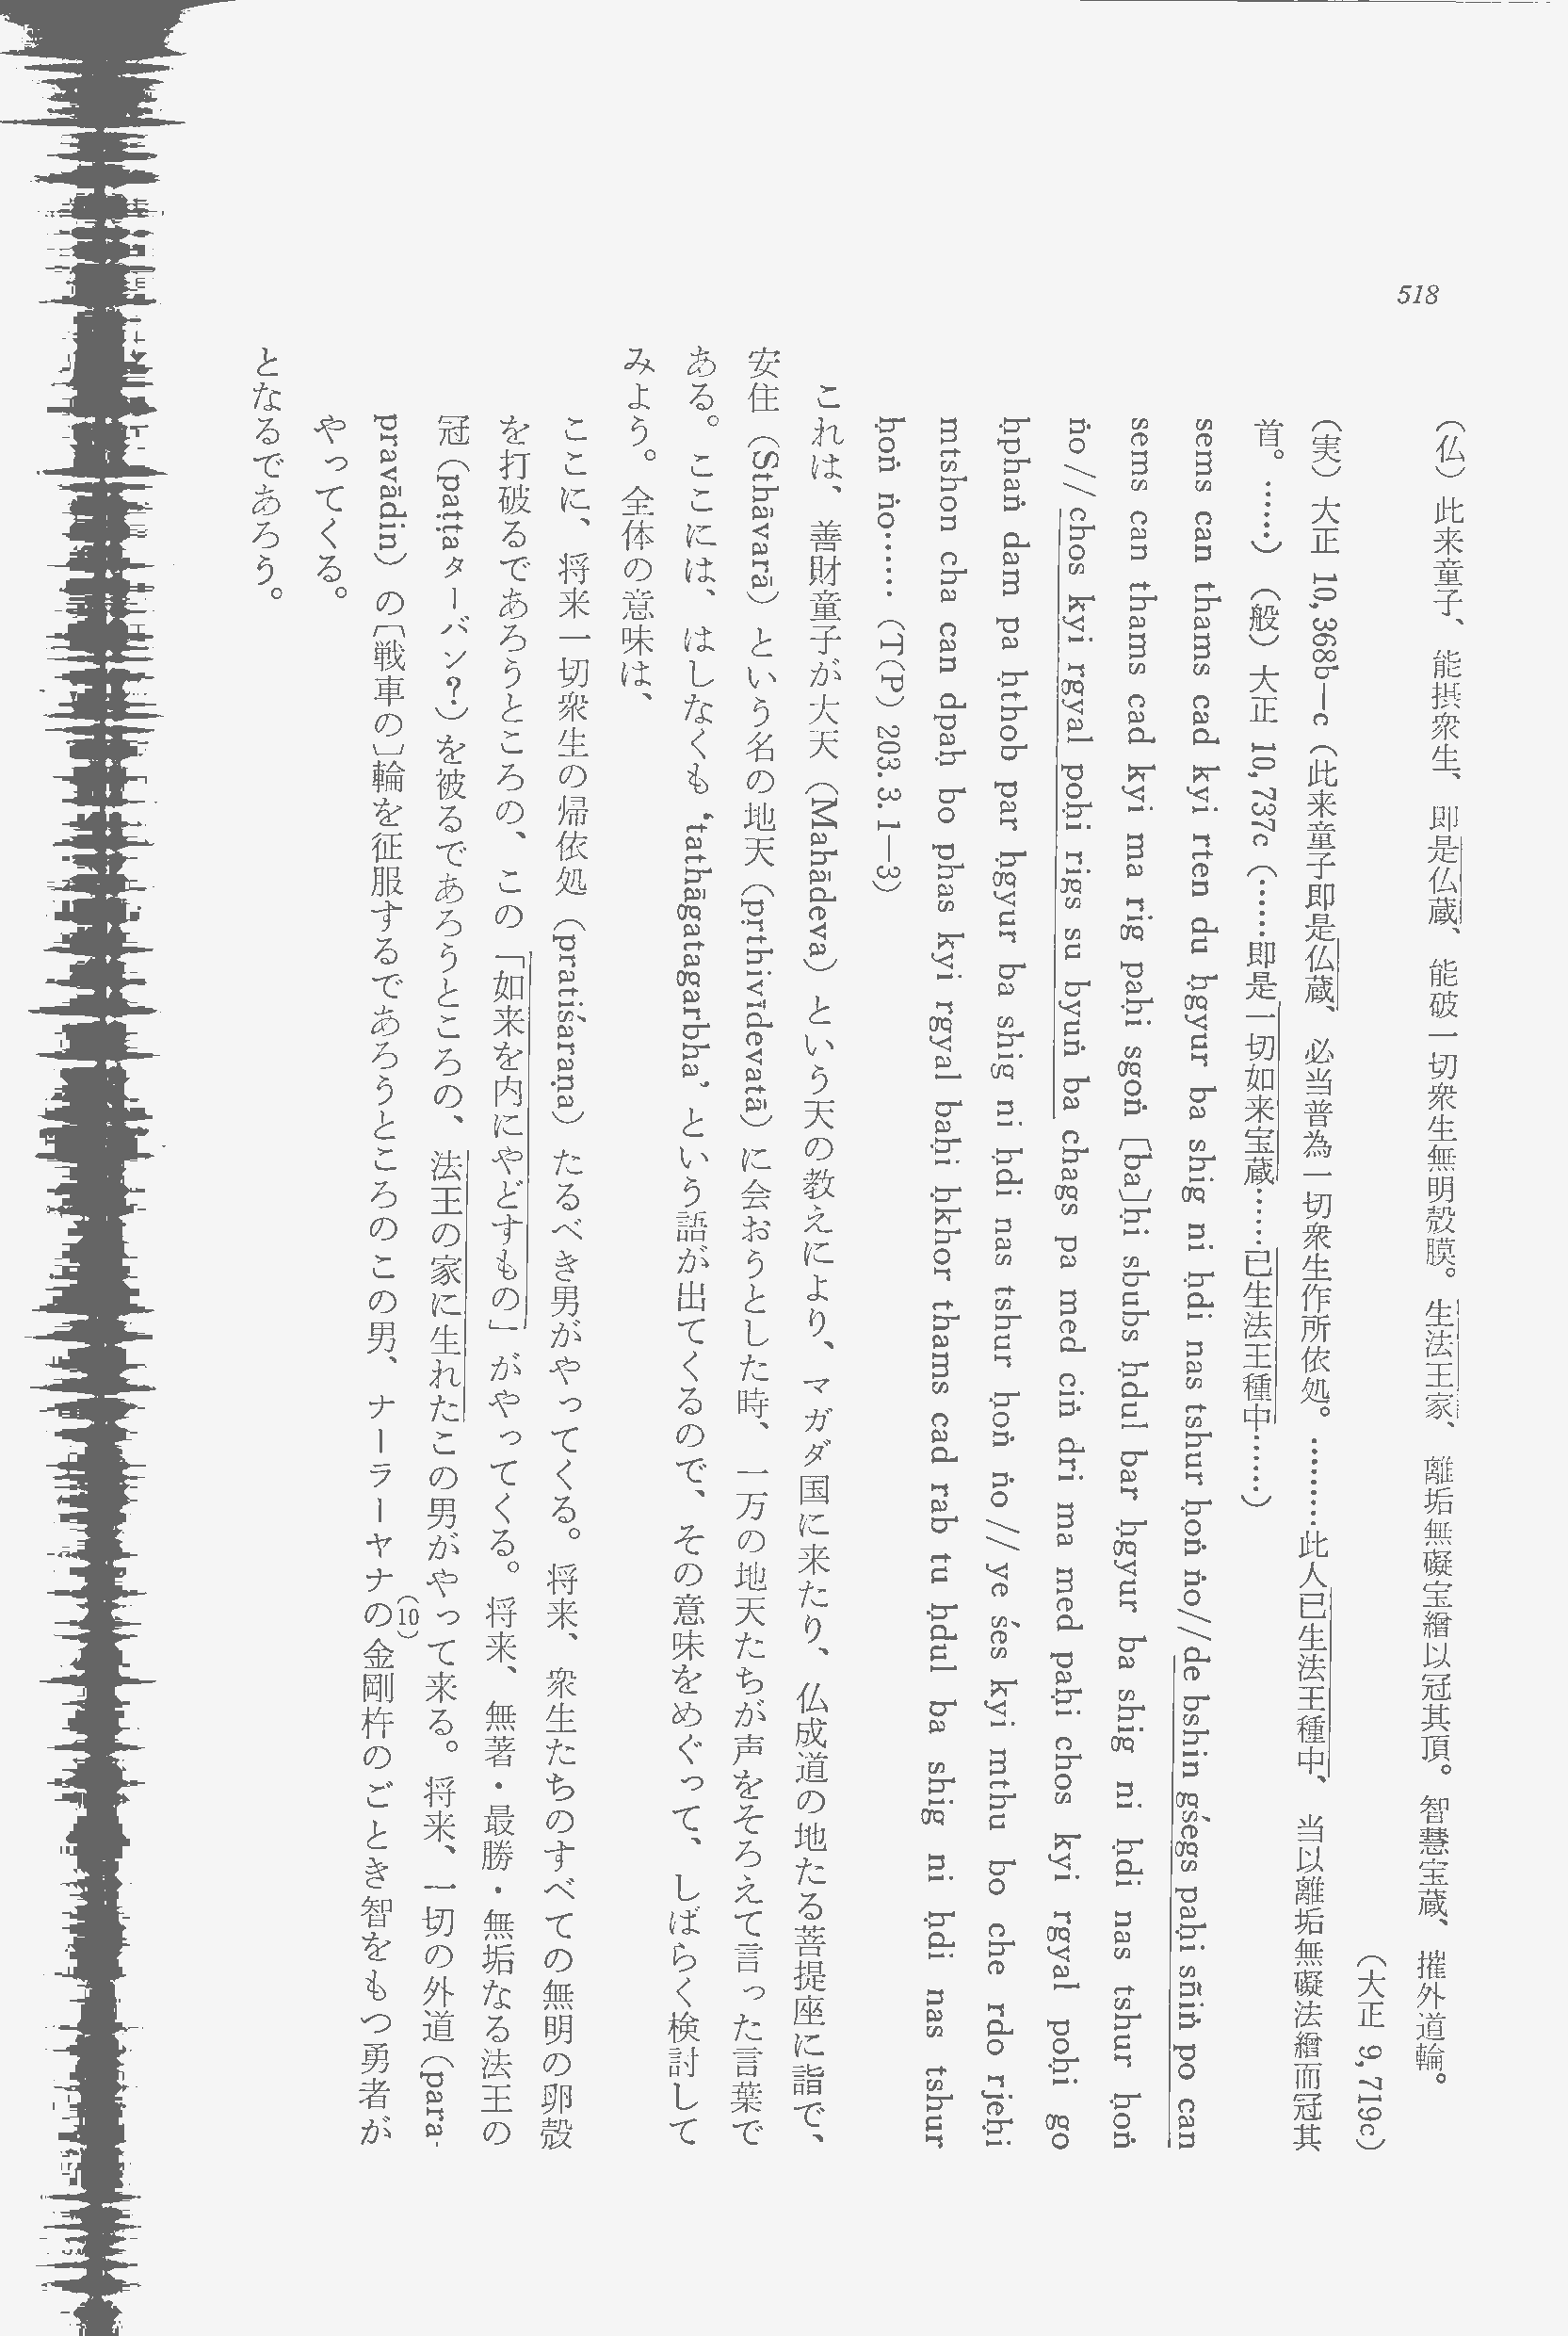 518
（仏）此来童子、能摂衆生、即是仏蔵、能破一切衆生無明殻膜。生法王家、離垢無礙宝繒以冠其頂。智慧宝蔵、摧外道輪。
（大正 9,719c）
（実）大正 10,368b—c（此来童子即是仏蔵、必当普為一切衆生作所依処。………此人已生法王種中、当以離垢無礙法繒而冠其
首。……）（般）大正 10,737c（……即是一切如来宝蔵……已生法王種中……）
sems can thams cad kyi rten du ḥgyur ba shig ni ḥdi nas tshur ḥoṅ ṅo//de bshin gśegs paḥi sñiṅ po can
sems can thams cad kyi ma rig paḥi sgoṅ [ba]ḥi sbubs ḥdul bar ḥgyur ba shig ni ḥdi nas tshur ḥoṅ
ṅo // chos kyi rgyal poḥi rigs su byuṅ ba chags pa med ciṅ dri ma med paḥi chos kyi rgyal poḥi go
ḥphaṅ dam pa ḥthob par ḥgyur ba shig ni ḥdi nas tshur ḥoṅ ṅo // ye śes kyi mthu bo che rdo rjeḥi
mtshon cha can dpaḥ bo phas kyi rgyal baḥi ḥkhor thams cad rab tu ḥdul ba shig ni ḥdi nas tshur
ḥoṅ ṅo……（T(P) 203. 3. 1—3）
これは、善財童子が大天（Mahādeva）という天の教えにより、マガダ国に来たり、仏成道の地たる菩提座に詣で、
安住（Sthāvarā）という名の地天（pṛthivīdevatā）に会おうとした時、一万の地天たちが声をそろえて言った言葉で
ある。ここには、はしなくも ‘tathāgatagarbha’ という語が出てくるので、その意味をめぐって、しばらく検討して
みよう。全体の意味は、
ここに、将来一切衆生の帰依処（pratiśaraṇa）たるべき男がやってくる。将来、衆生たちのすべての無明の卵殻
を打破るであろうところの、この「如来を内にやどすもの」がやってくる。将来、無著・最勝・無垢なる法王の
冠（paṭṭa ターバン？）を被るであろうところの、法王の家に生れたこの男がやって来る。将来、一切の外道（para-
pravādin）の〔戦車の〕輪を征服するであろうところのこの男、ナーラーヤナの(10)金剛杵のごとき智をもつ勇者が
やってくる。
となるであろう。